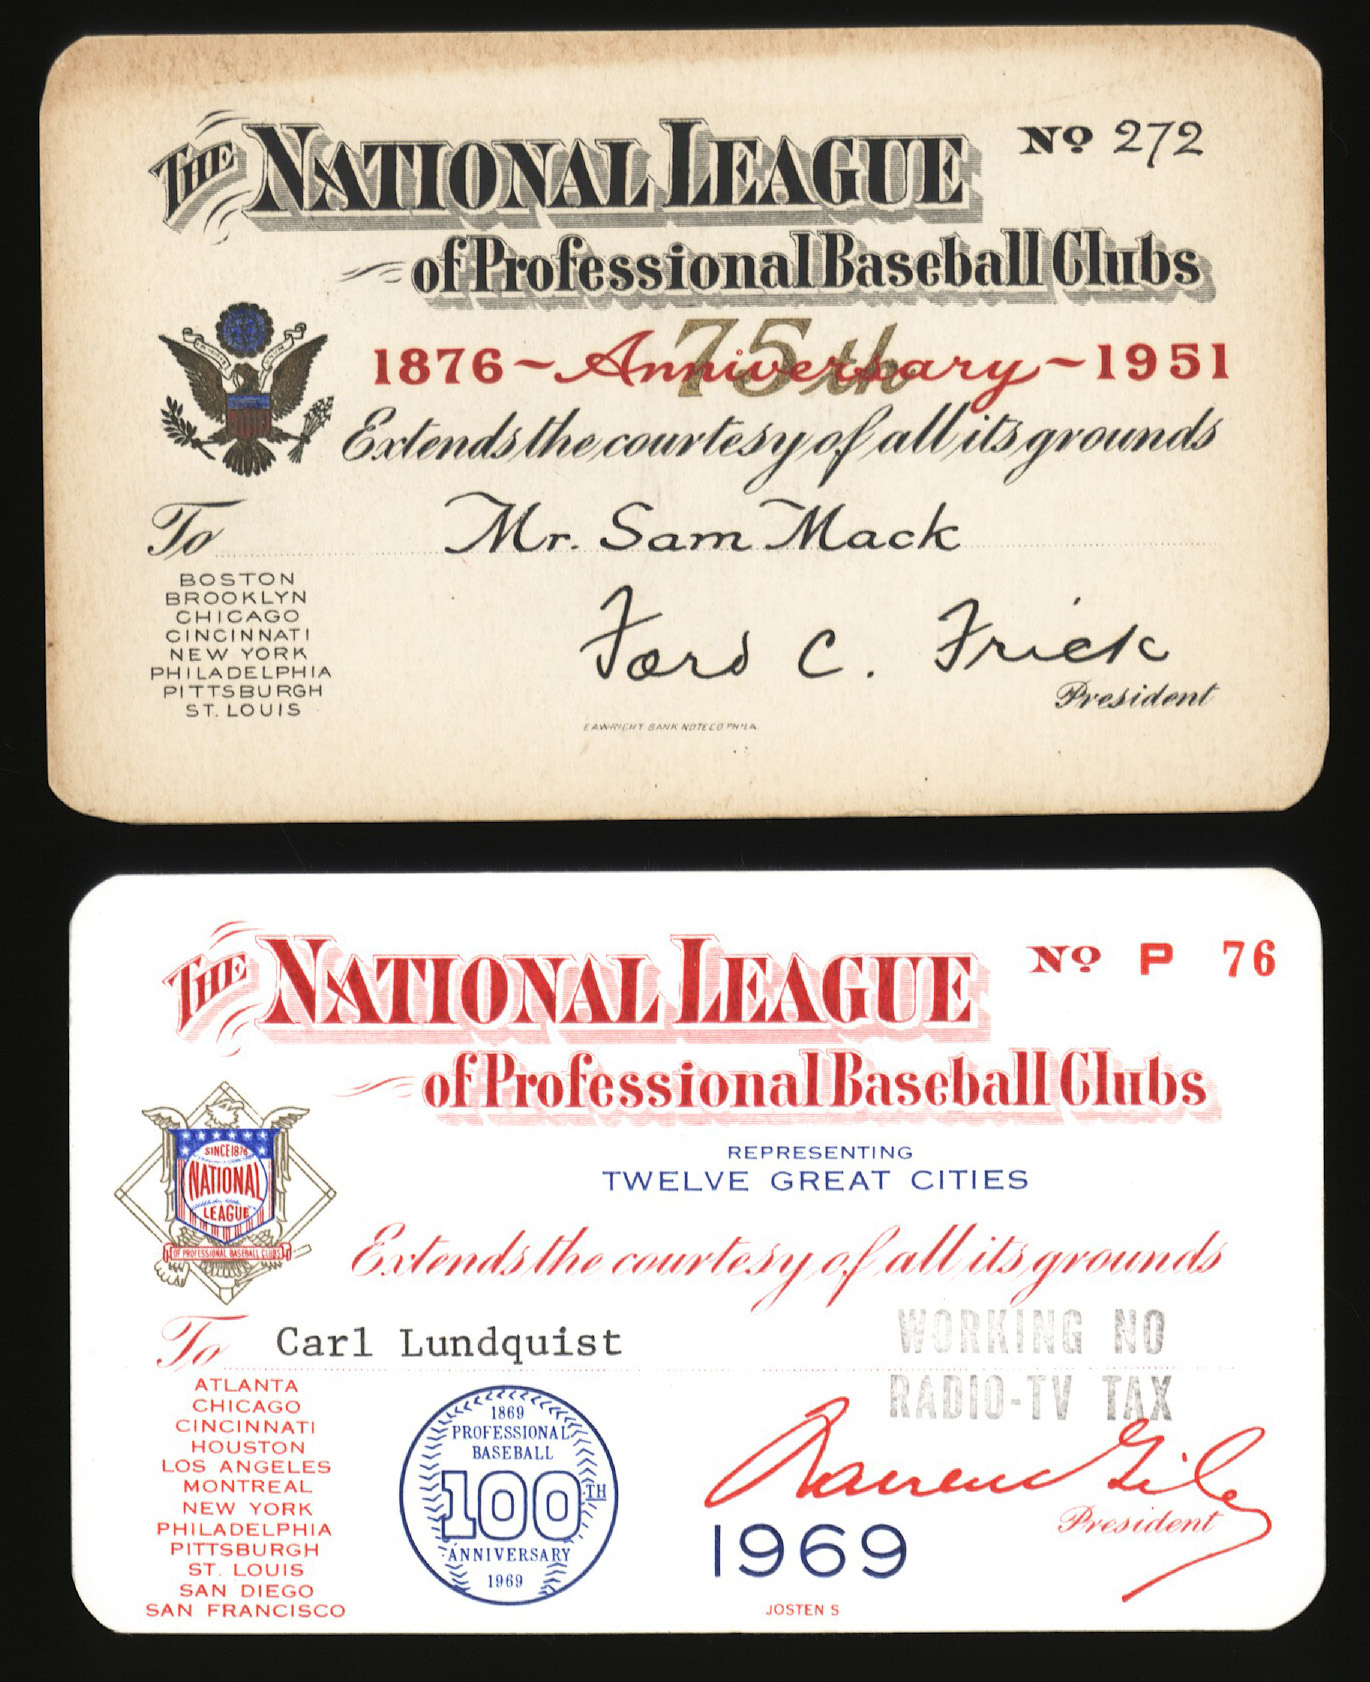 THE NATIONAL LEAGUE
No 272
of Professional Baseball Clubs
75th
1876 ~ Anniversary ~ 1951
Extends the courtesy of all its grounds
To Mr. Sam Mack
BOSTON
BROOKLYN
CHICAGO
CINCINNATI
NEW YORK
PHILADELPHIA
PITTSBURGH
ST. LOUIS
Ford C. Frick
President
E.A.WRIGHT BANK NOTE CO. PHILA.
THE NATIONAL LEAGUE
No P 76
of Professional Baseball Clubs
REPRESENTING
TWELVE GREAT CITIES
SINCE 1876
NATIONAL
LEAGUE
OF PROFESSIONAL BASEBALL CLUBS
Extends the courtesy of all its grounds
To Carl Lundquist
WORKING NO
RADIO-TV TAX
ATLANTA
CHICAGO
CINCINNATI
HOUSTON
LOS ANGELES
MONTREAL
NEW YORK
PHILADELPHIA
PITTSBURGH
ST. LOUIS
SAN DIEGO
SAN FRANCISCO
1869
PROFESSIONAL
BASEBALL
100TH
ANNIVERSARY
1969
Warren Giles
President
1969
JOSTEN S